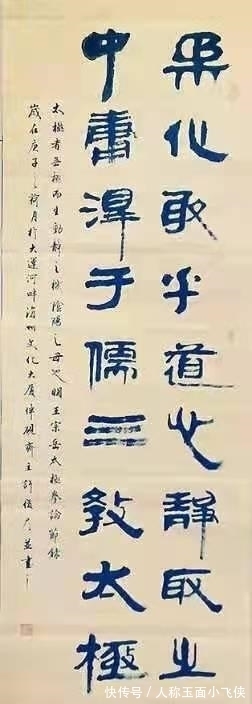 柔化取乎道也静取之
中庸淂于儒三教太極
太極者無極而生動静之機陰陽之母也明王宗岳太極拳論節録
歲在庚子之荷月於大運河畔滄州文化大厦伴硯齋主許俊並書
快传号／人称玉面小飞侠